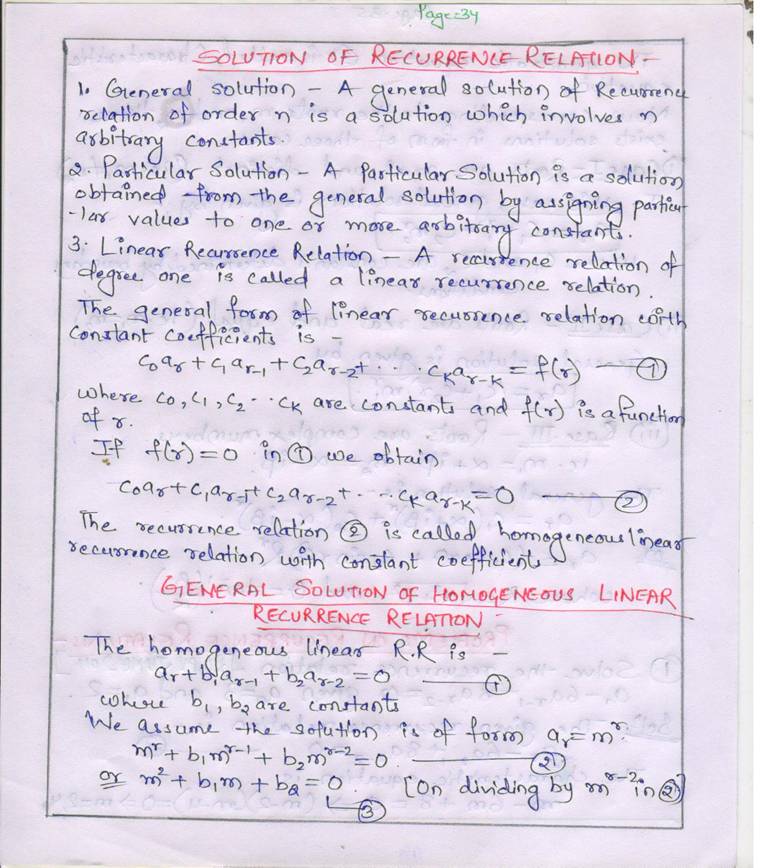 Page=34
SOLUTION OF RECURRENCE RELATION -
1. General solution - A general solution of Recurrence
relation of order n is a solution which involves n
arbitrary constants.
2. Particular Solution - A Particular Solution is a solution
obtained from the general solution by assigning particu-
-lar values to one or more arbitrary constants.
3. Linear Recurrence Relation - A recurrence relation of
degree one is called a linear recurrence relation.
The general form of linear recurrence relation with
constant coefficients is -
C₀aᵣ + C₁aᵣ₋₁ + C₂aᵣ₋₂ + ... Cₖaᵣ₋ₖ = f(r) — ①
where C₀, C₁, C₂ .. Cₖ are constants and f(r) is a function
of r.
If f(r) = 0 in ① we obtain
C₀aᵣ + C₁aᵣ₋₁ + C₂aᵣ₋₂ + ... Cₖaᵣ₋ₖ = 0 — ②
The recurrence relation ② is called homogeneous linear
recurrence relation with constant coefficients
GENERAL SOLUTION OF HOMOGENEOUS LINEAR
RECURRENCE RELATION -
The homogeneous linear R.R is -
aᵣ + b₁aᵣ₋₁ + b₂aᵣ₋₂ = 0 — ①
where b₁, b₂ are constants
We assume the solution is of form aᵣ = mʳ.
mʳ + b₁mʳ⁻¹ + b₂mʳ⁻² = 0. — ②
or m² + b₁m + b₂ = 0. [On dividing by mʳ⁻² in ②]
③